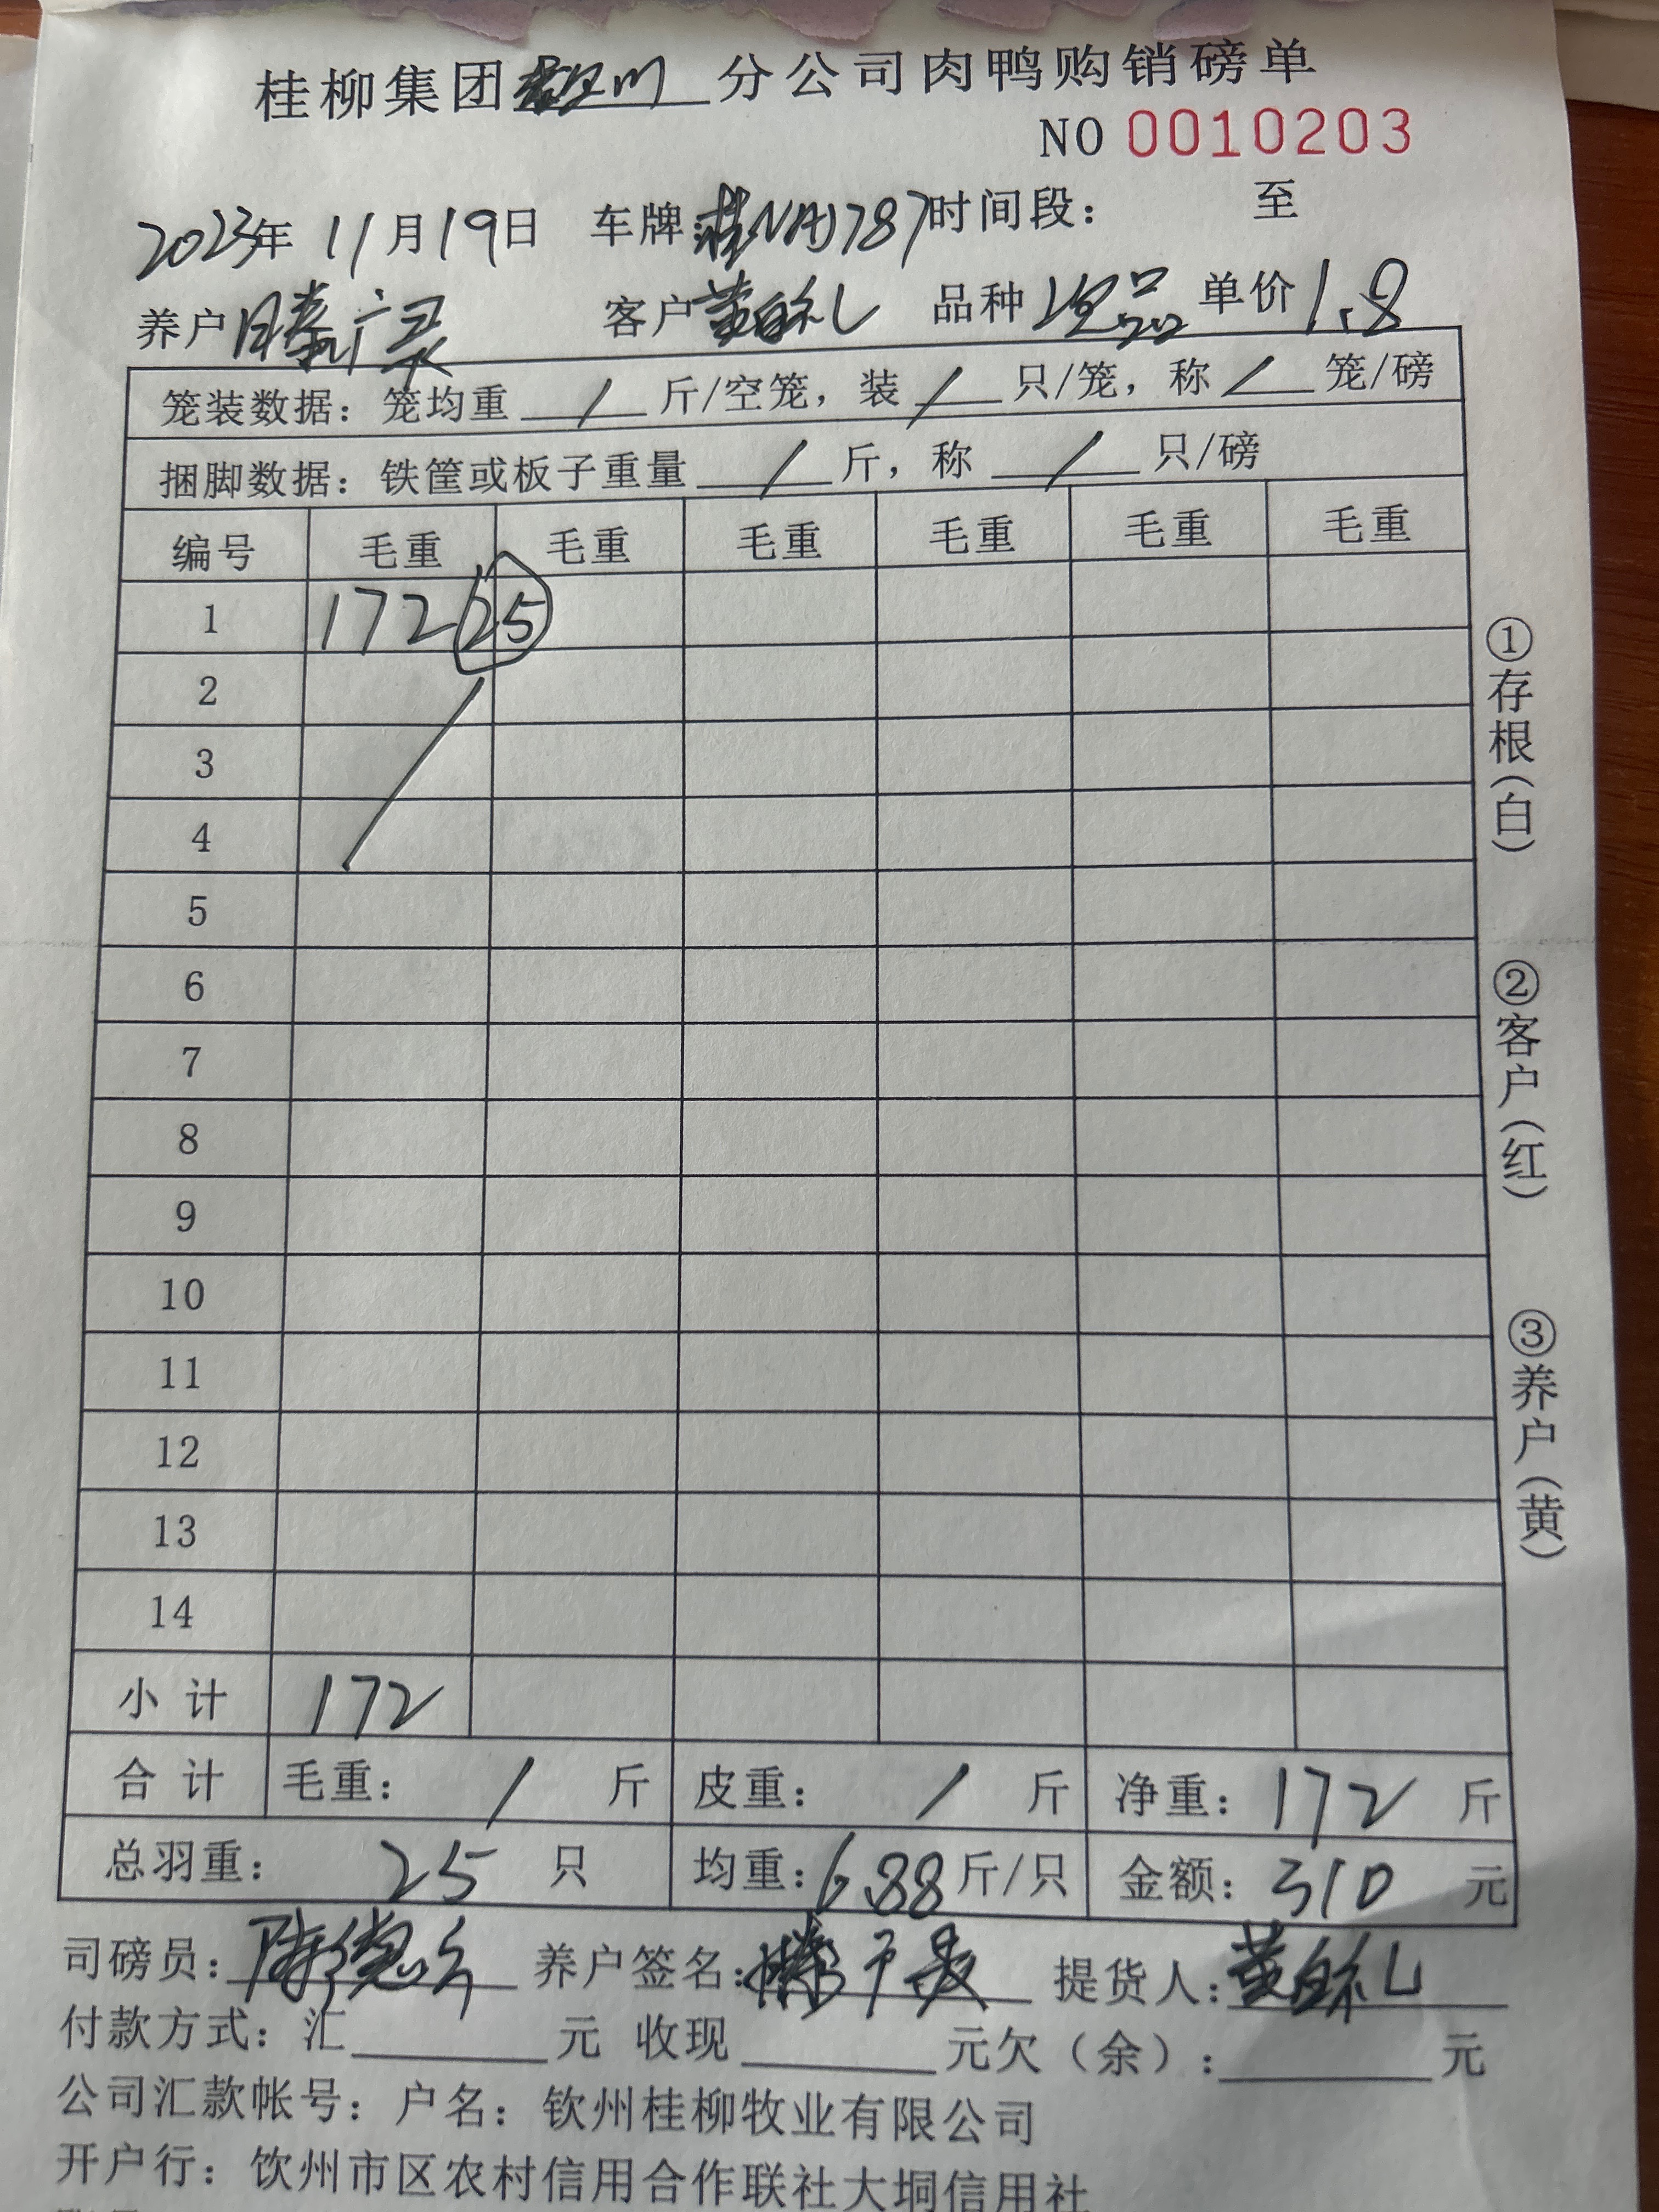 桂柳集团 分公司肉鸭购销磅单
NO 0010203
2023年 11月19日 车牌:桂NAJ787 时间段: 至
养户 滕广 客户 黄自礼 品种 次品 单价 1.8
笼装数据: 笼均重 / 斤/空笼, 装 / 只/笼, 称 / 笼/磅
捆脚数据: 铁筐或板子重量 / 斤, 称 / 只/磅
编号 毛重 毛重 毛重 毛重 毛重 毛重
1 172 25
2
3
4
5
6
7
8
9
10
11
12
13
14
小计 172
合计 毛重: / 斤 皮重: / 斤 净重: 172 斤
总羽重: 25 只 均重: 6.88 斤/只 金额: 310 元
司磅员: 陈德 养户签名: 滕广 提货人: 黄自礼
付款方式: 汇 元 收现 元欠(余): 元
公司汇款帐号: 户名: 钦州桂柳牧业有限公司
开户行: 钦州市区农村信用合作联社大垌信用社
①存根(白)
②客户(红)
③养户(黄)